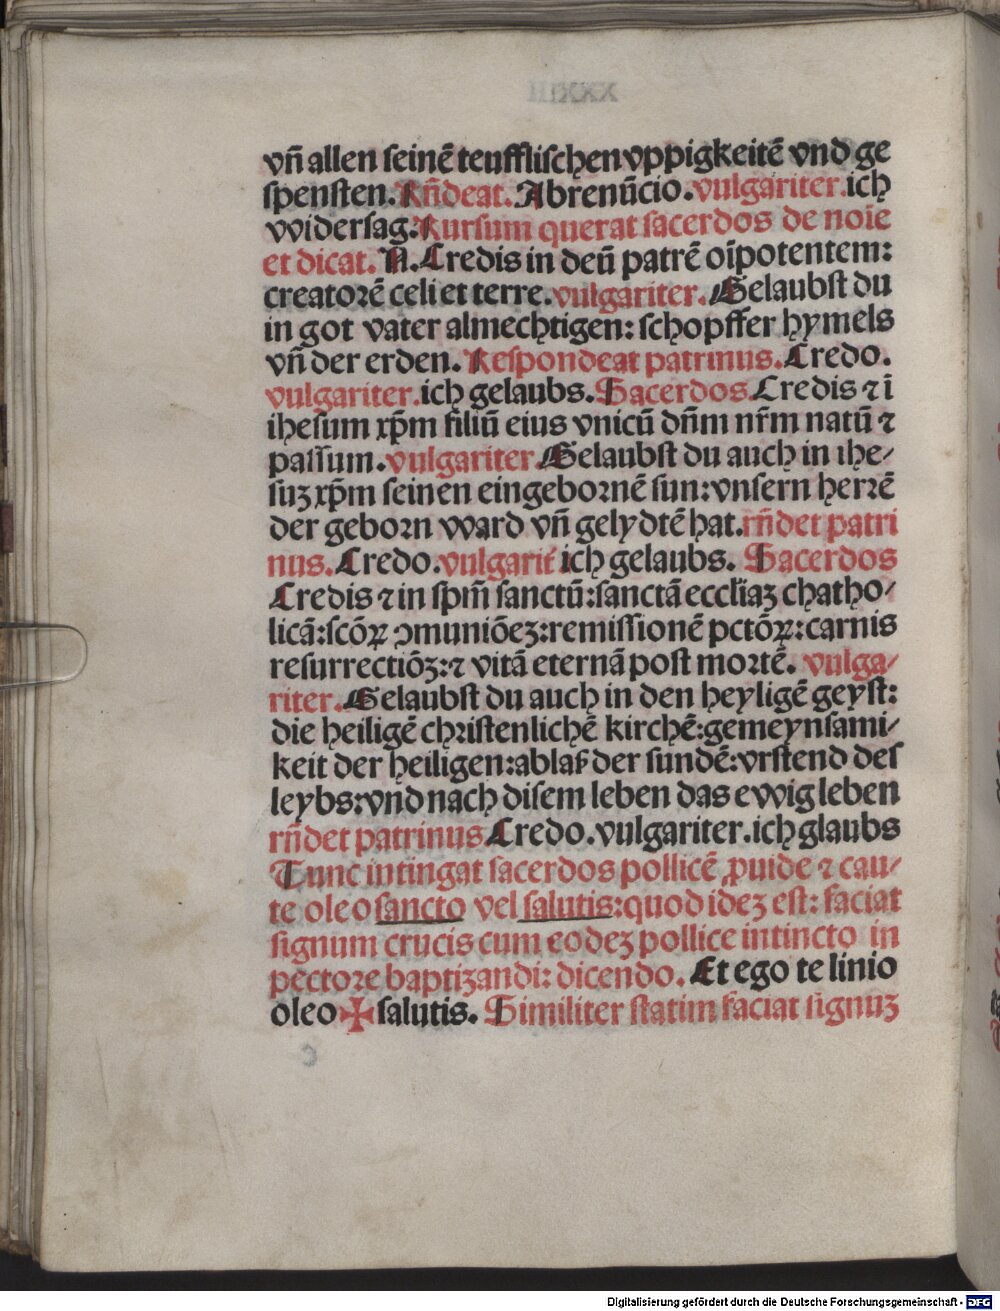 vñ allen seinē teufflischen vppigkeitē vnd ge
spensten. Rñdeat. Abrenūcio. vulgariter. ich
vviderſag. Rursum querat sacerdos de noīe
et dicat. N. Credis in deū patrē oīpotentem:
creatorē celi et terre. vulgariter. Gelaubst du
in got vater almechtigen: schopffer hymels
vñ der erden. Respondeat patrinus. Credo.
vulgariter. ich gelaubs. Sacerdos. Credis ⁊ ī
ihesum xp̄m filiū eius vnicū dñm nr̄m natū ⁊
passum. vulgariter. Gelaubst du auch in ihe⸗
suʒ xp̄m seinen eingebornē sun: vnsern herrē
der geborn ward vñ gelydtē hat. rñdet patri
nus. Credo. vulgarit̄ ich gelaubs. Sacerdos
Credis ⁊ in sp̄m sanctū: sanctā eccl̄iaʒ chatho⸗
licā: scōꝝ ɔmuniōeʒ: remissionē pctōꝝ: carnis
resurrectiōʒ: ⁊ vitā eternā post mortē. vulga⸗
riter. Gelaubst du auch in den heyligē geyst:
die heiligē christenlichē kirchē: gemeynsami⸗
keit der heiligen: ablaß der sundē: vrstend des
leybs: vnd nach disem leben das ewig leben
rñdet patrinus Credo. vulgariter. ich glaubs
Tunc intingat sacerdos pollicē ꝓuide ⁊ cau⸗
te oleo sancto vel salutis: quod ideʒ est: faciat
signum crucis cum eodeʒ pollice intincto in
pectore baptizandi: dicendo. Et ego te linio
oleo ✠ salutis. Similiter statim faciat signuʒ
Digitalisierung gefördert durch die Deutsche Forschungsgemeinschaft - DFG